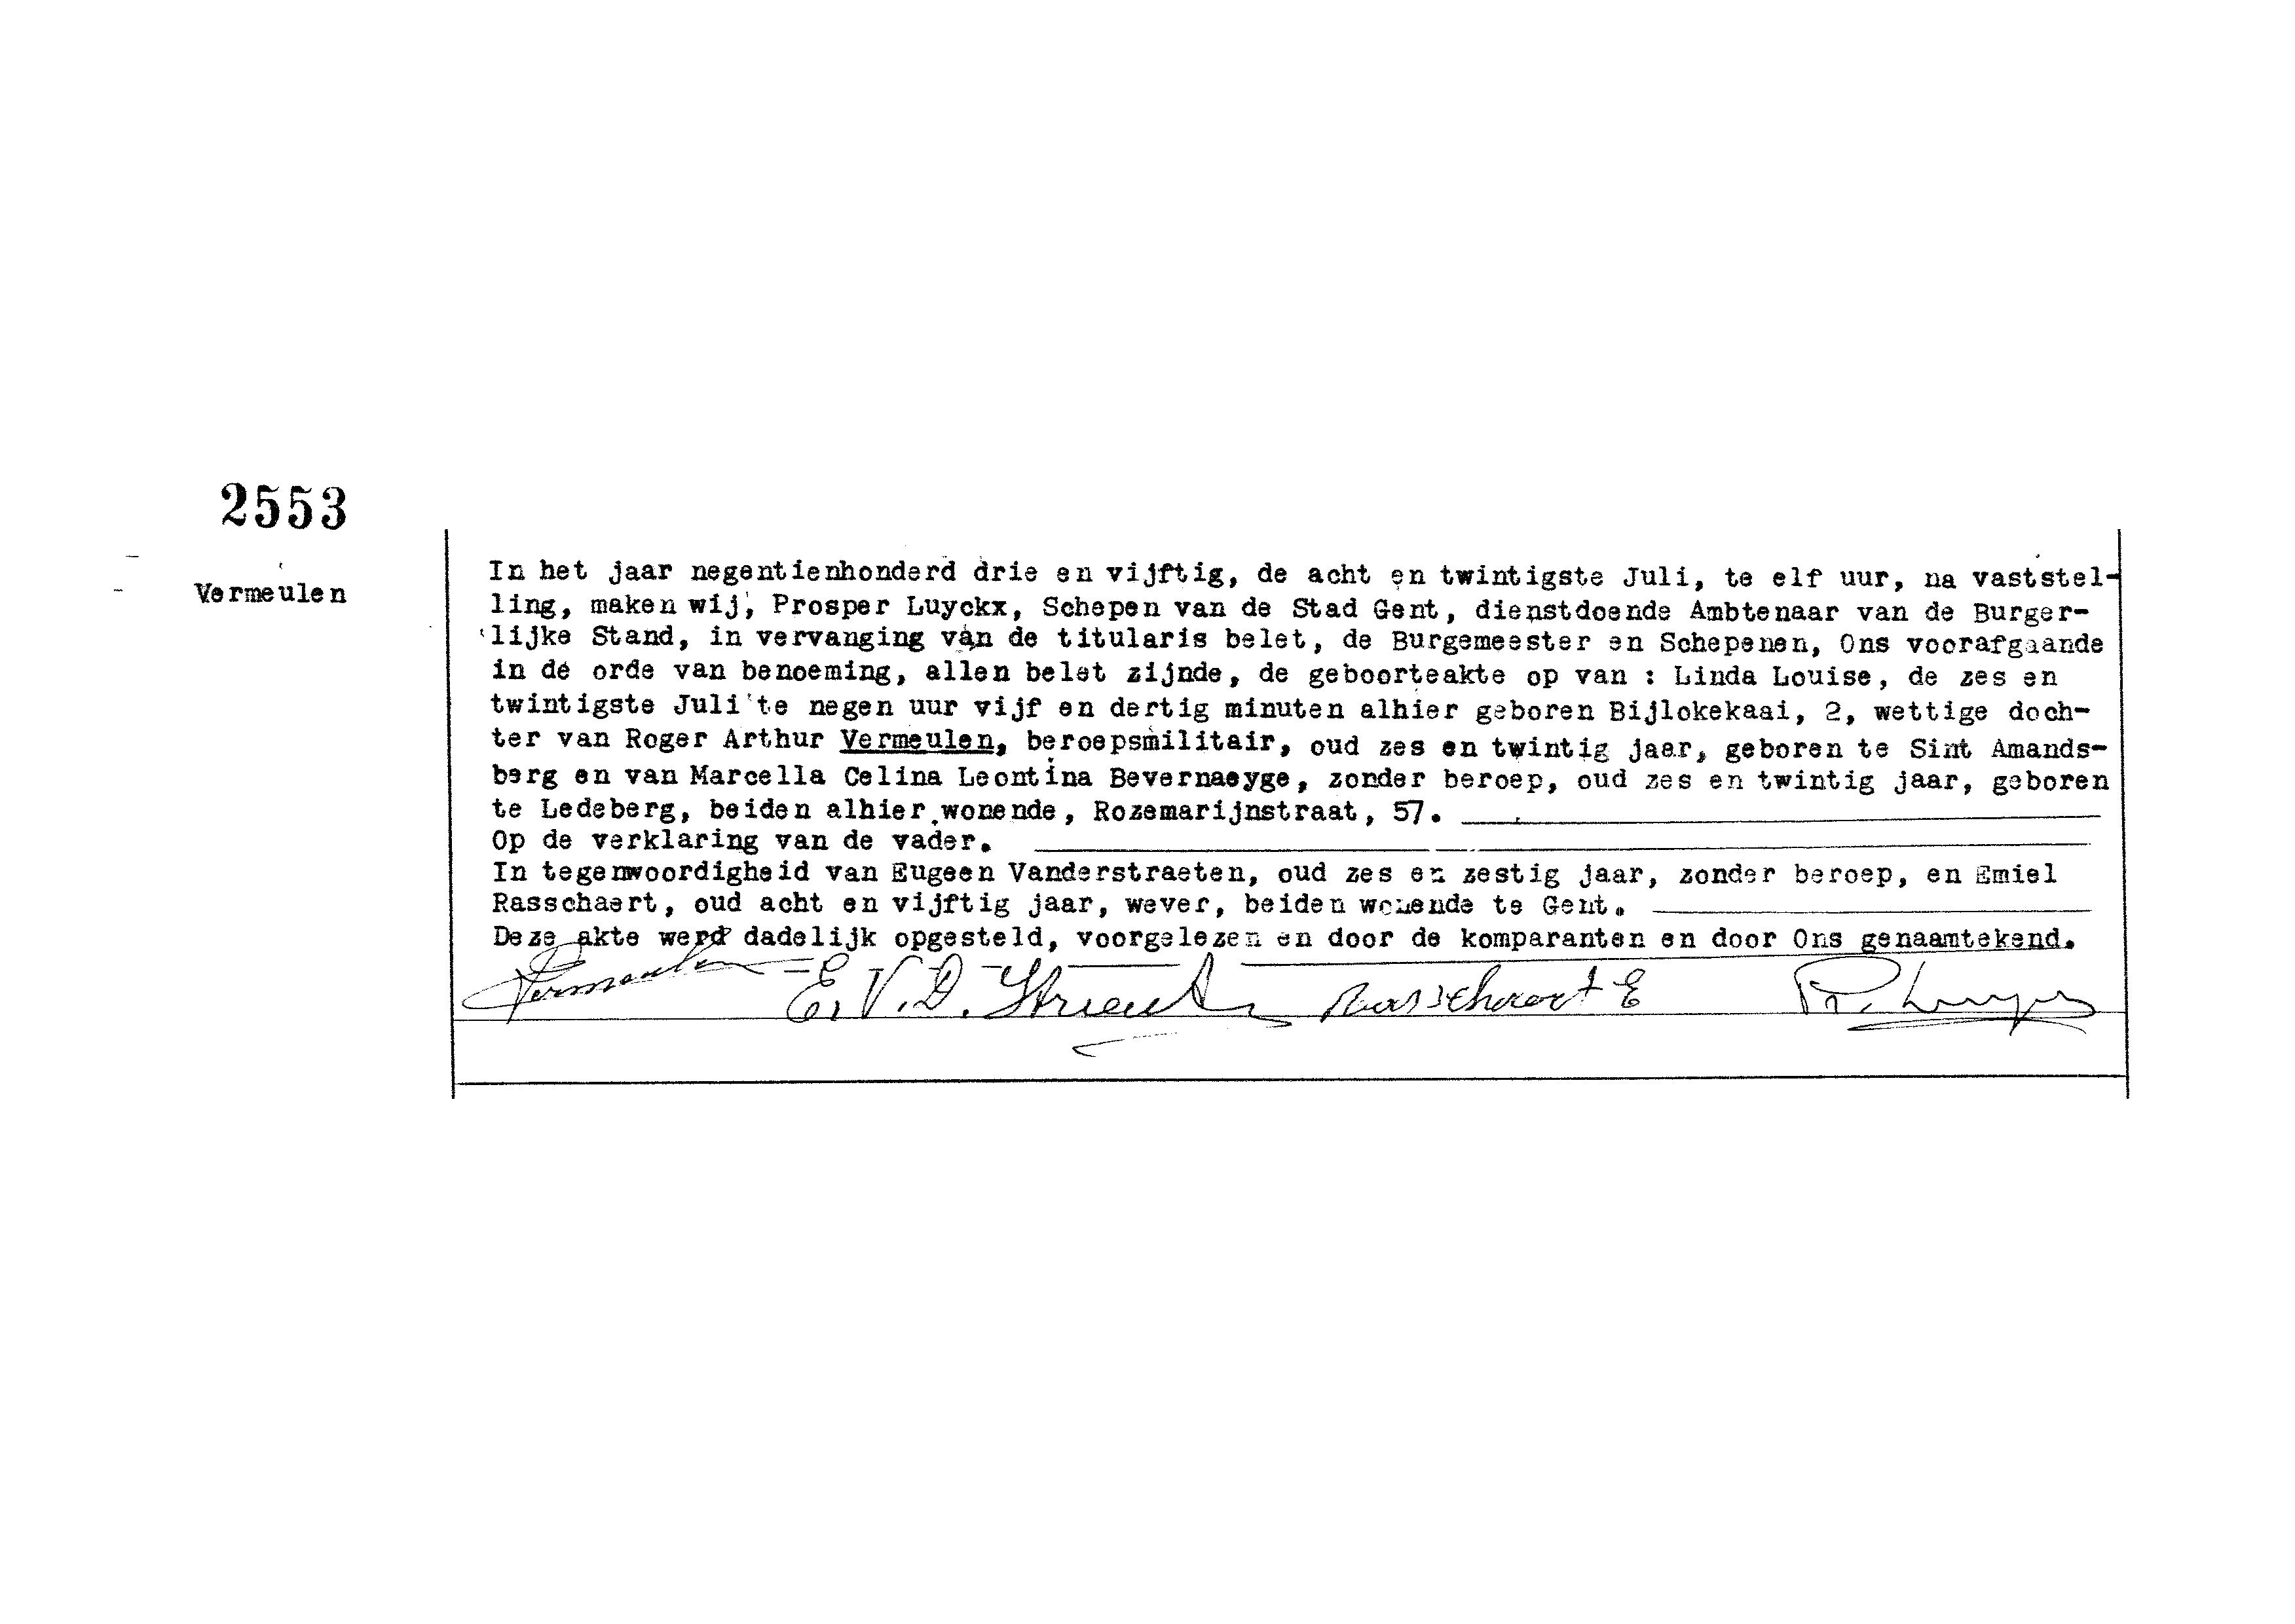 2553
Vermeulen
In het jaar negentienhonderd drie en vijftig, de acht en twintigste Juli, te elf uur, na vaststel-
ling, maken wij, Prosper Luyckx, Schepen van de Stad Gent, dienstdoende Ambtenaar van de Burger-
lijke Stand, in vervanging van de titularis belet, de Burgemeester en Schepenen, Ons voorafgaande
in de orde van benoeming, allen belet zijnde, de geboorteakte op van : Linda Louise, de zes en
twintigste Juli te negen uur vijf en dertig minuten alhier geboren Bijlokekaai, 2, wettige doch-
ter van Roger Arthur Vermeulen, beroepsmilitair, oud zes en twintig jaar, geboren te Sint Amands-
berg en van Marcella Celina Leontina Bevernaeyge, zonder beroep, oud zes en twintig jaar, geboren
te Ledeberg, beiden alhier wonende, Rozemarijnstraat, 57.
Op de verklaring van de vader.
In tegenwoordigheid van Eugeen Vanderstraeten, oud zes en zestig jaar, zonder beroep, en Emiel
Rasschaert, oud acht en vijftig jaar, wever, beiden wonende te Gent.
Deze akte werd dadelijk opgesteld, voorgelezen en door de komparanten en door Ons genaamtekend.
Vermeulen E. V. D. Rasschaert E